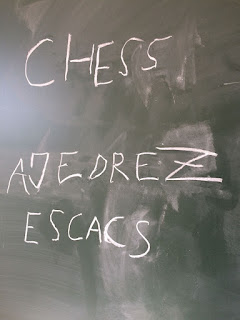 CHESS
AJEDREZ
ESCACS